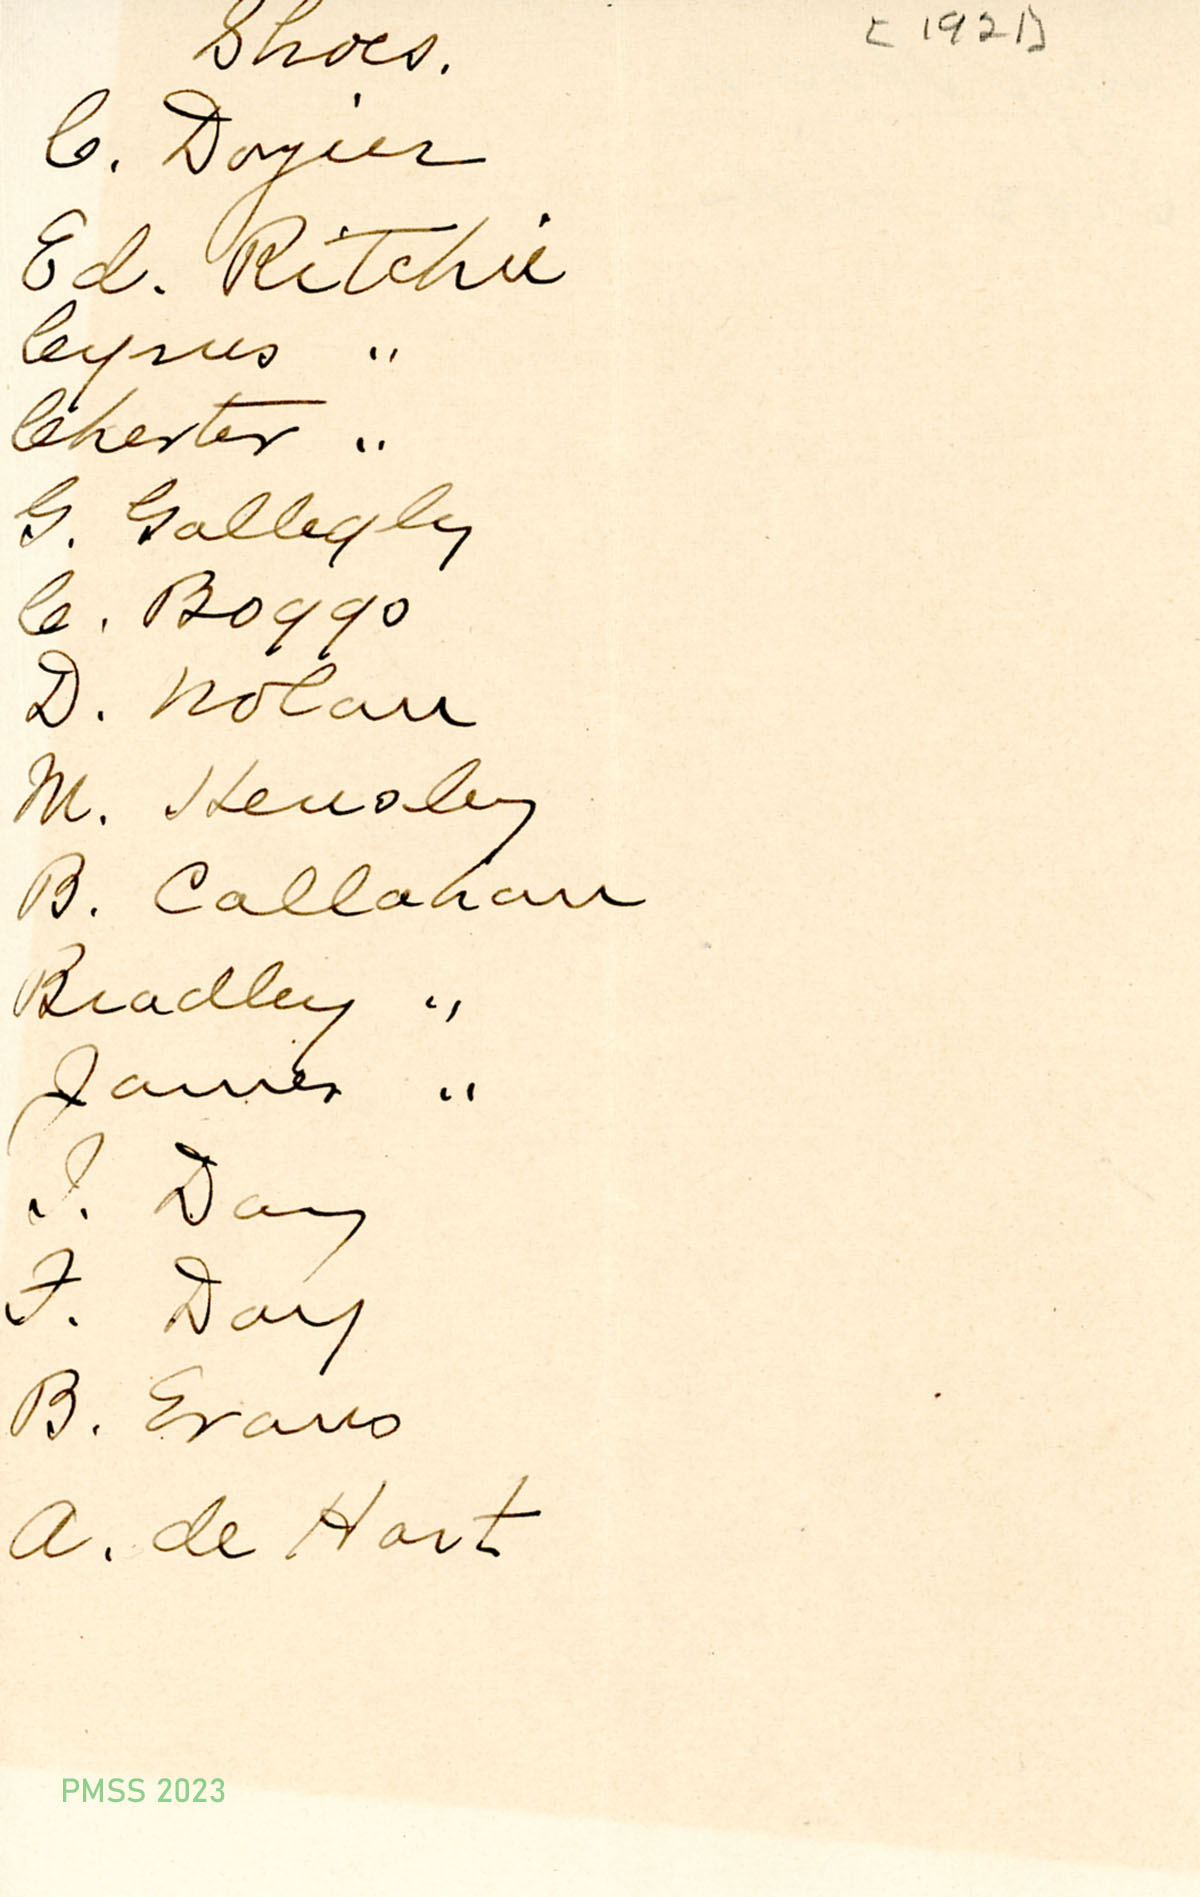 Shoes.
[1921]
C. Dozier
Ed. Ritchie
Cyrus "
Chester "
G. Gallegly
C. Boggs
D. Nolan
M. Hensley
B. Callahan
Bradley "
James "
J. Day
F. Day
B. Evans
A. de Hart
PMSS 2023